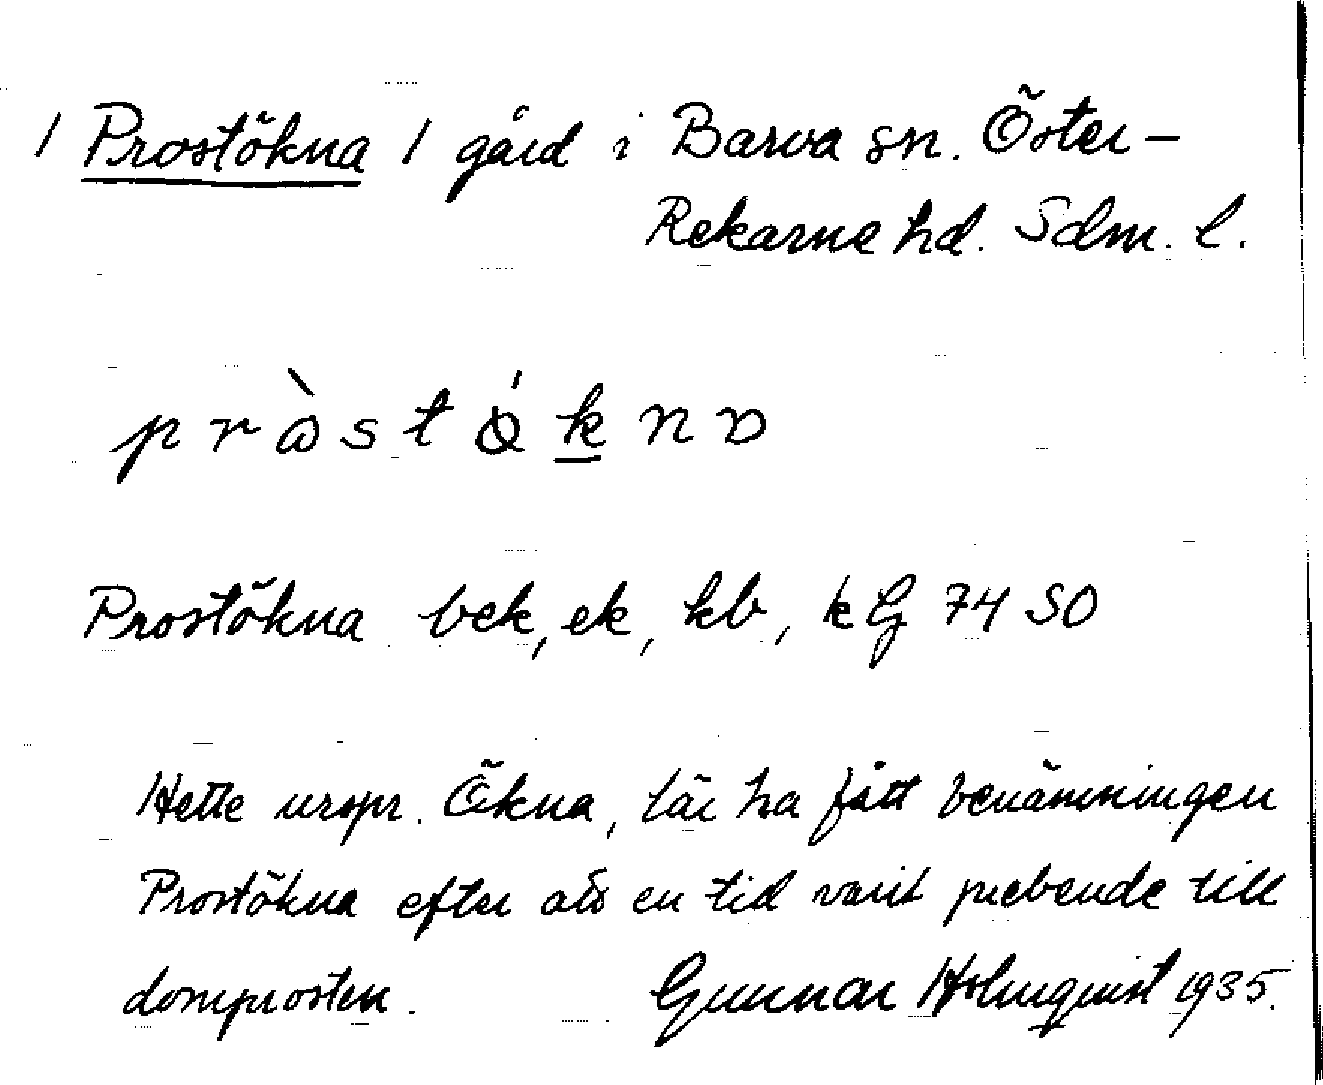 / Prostökna / gård i Barva sn. Öster-
Rekarne hd. Sdm. l.
Prostökna bek, ek, kb, kG 74 SO
Hette urspr. Ökna, lär ha fått benämningen
Prostökna efter att en tid varit prebende till
domprosten. Gunnar Holmquist 1935.